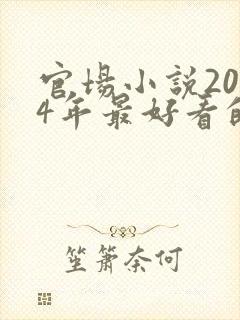 官場小說20
4年最好看的
笙簫奈何